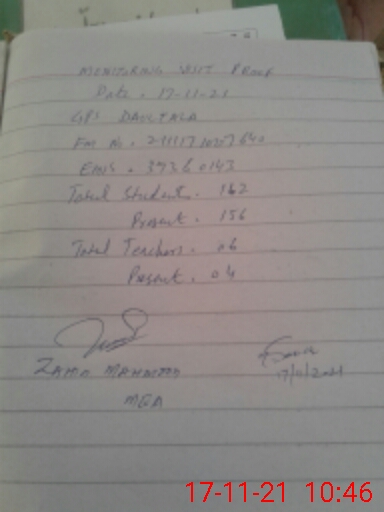 MONITORING VISIT PROOF
Date. 17-11-21
GPS DAULTALA
EMIS. 39360143
Total Students. 162
Present. 156
Total Teachers. 06
Present. 04
ZAHID MAHMOOD
MEA
17/11/2021
17-11-21 10:46